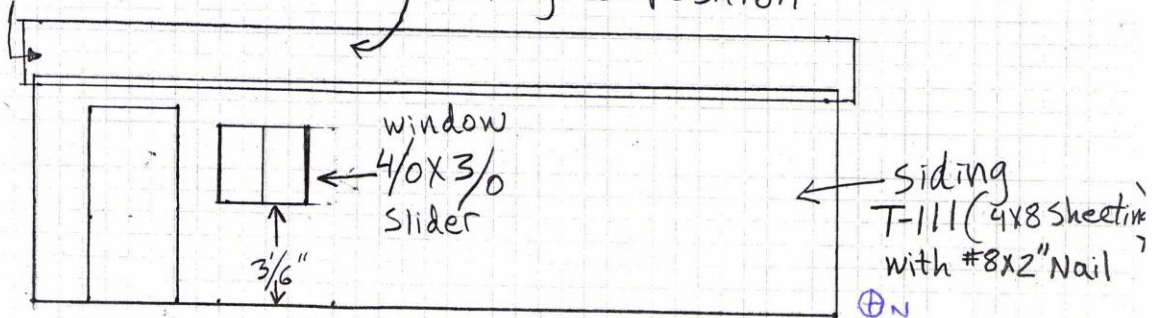 window
4/0 X 3/0
Slider
3'6"
siding
T-111 (4X8 Sheeting)
with #8X2" Nail
N